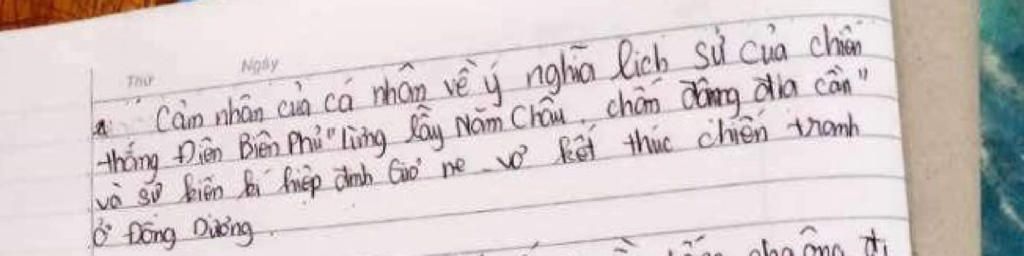 Thứ Ngày
a. Cảm nhận của cá nhân về ý nghĩa lịch sử của chiến
thắng Điện Biên Phủ "lừng lẫy Năm Châu, chấn động địa cần"
và sự kiện kí hiệp định Giơ ne vơ kết thúc chiến tranh
ở Đông Dương.
ông đi